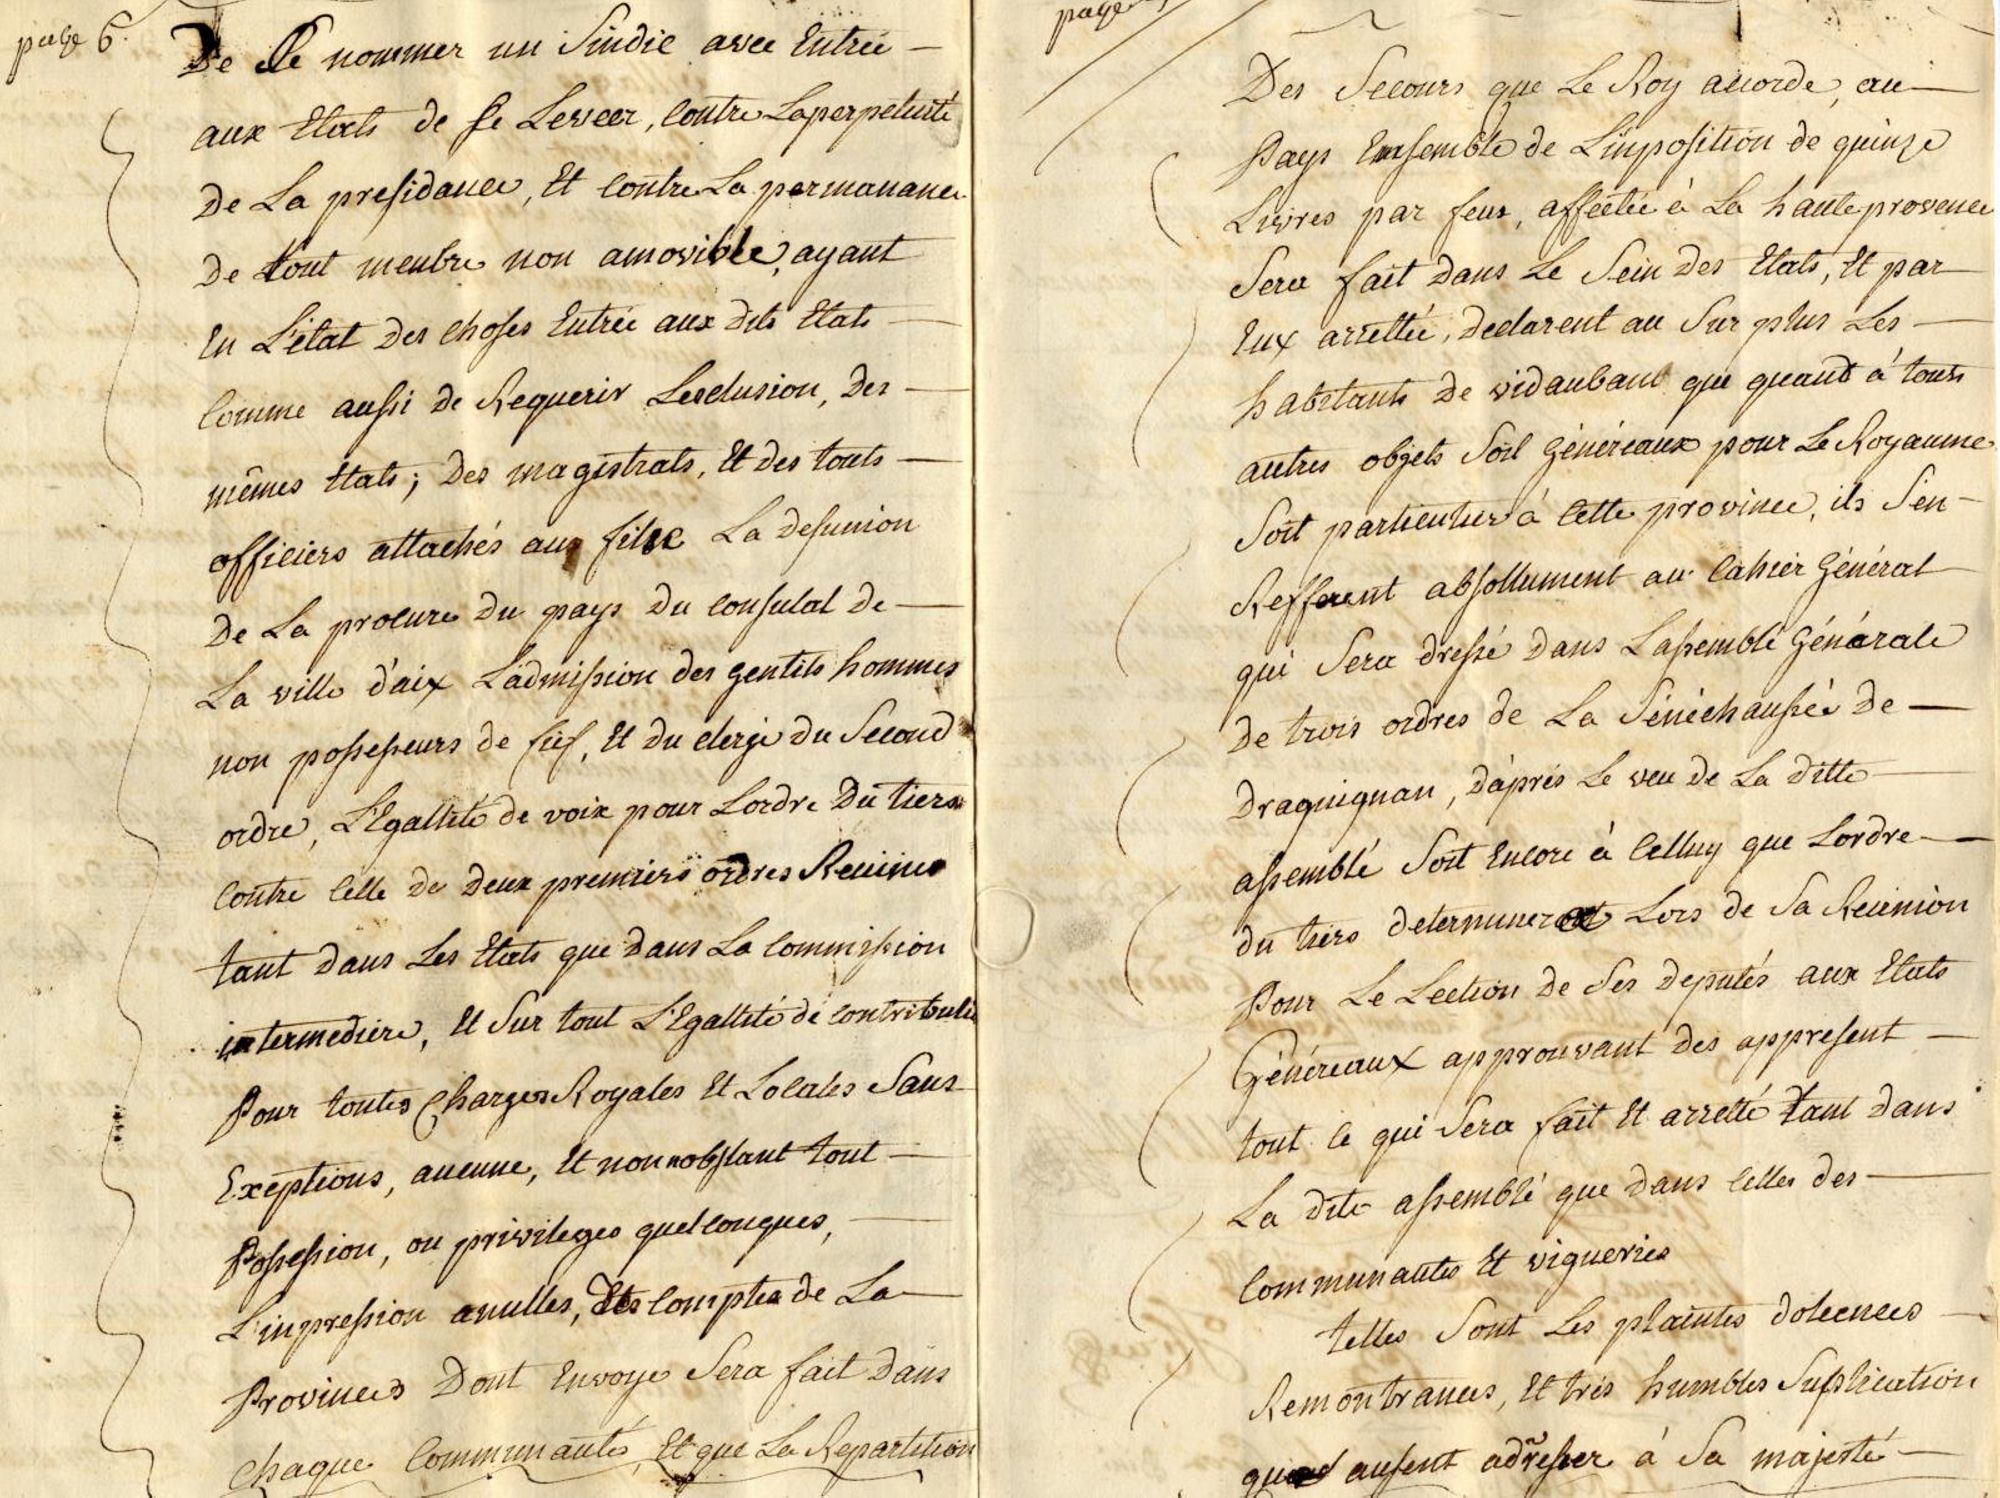 page 6.
De Se nommer un Sindic avec Entrée —
aux Etats de Se Lever, Contre Laperpetuité
De La presidance, Et Contre La permanance
De tout menbre non amovible, ayant
En L'état Des choses Entrée aux Dits Etats —
Comme aussi de Requerir Lesclusion, Des —
mêmes Etats; Des magistrats, Et des touts —
officiers attachés au fisc La Desunion
De La procure Du pays Du Consulat De —
La ville d'aix L'admission des gentils hommes
non possesseurs de fief, Et Du clergé Du Second
ordre, L'Egallité de voix pour Lordre Du tiers
Contre Celle De Deux premiers ordres Reunis
tant Dans Les Etats que Dans La Commission
intermediere, Et Sur tout L'Egallité de Contributi
Pour toutes Charges Royales Et Locales Sans
Exeptions, aucune, Et nonnobstant tout —
Possession, ou privileges quelconques, —
L'inpression anulles, Des Comptes de La —
Provinces Dont Envoye Sera fait Dans
chaque Communautés, Et que La Repartition
page
Des Secours que Le Roy accorde, au —
Pays Ensemble de L'inposition de quinze
Livres par feux, affectée à La haute provence
Sera fait Dans Le Sein Des Etats, Et par —
Eux arrettée, Declarent au Sur plus Les —
habitants De vidauban que quand à touts
autres objets Soit Généreaux pour Le Royaume
Soit particulier à Cette province, ils S'en —
Refferent absollument au Cahier Général
qui Sera dressé Dans Lassemblé Générale
De trois ordres de La Sénéchaussée De —
Draguignan, D'aprés Le veu De La Ditte —
assemblé Soit Encore à Celluy que Lordre —
du tiers determinera Lors de Sa Reunion
Pour Le Lection De Ses Deputés aux Etats
Généreaux approuvant Des appresent —
tout ce qui Sera fait Et arretté tant Dans
La Dite assemblé que Dans Celles des —
Communautés Et vigueries
telles Sont Les plaintes Doleences —
Remontrances, Et trés humbles Suplication
ausent adresser à Sa majesté —